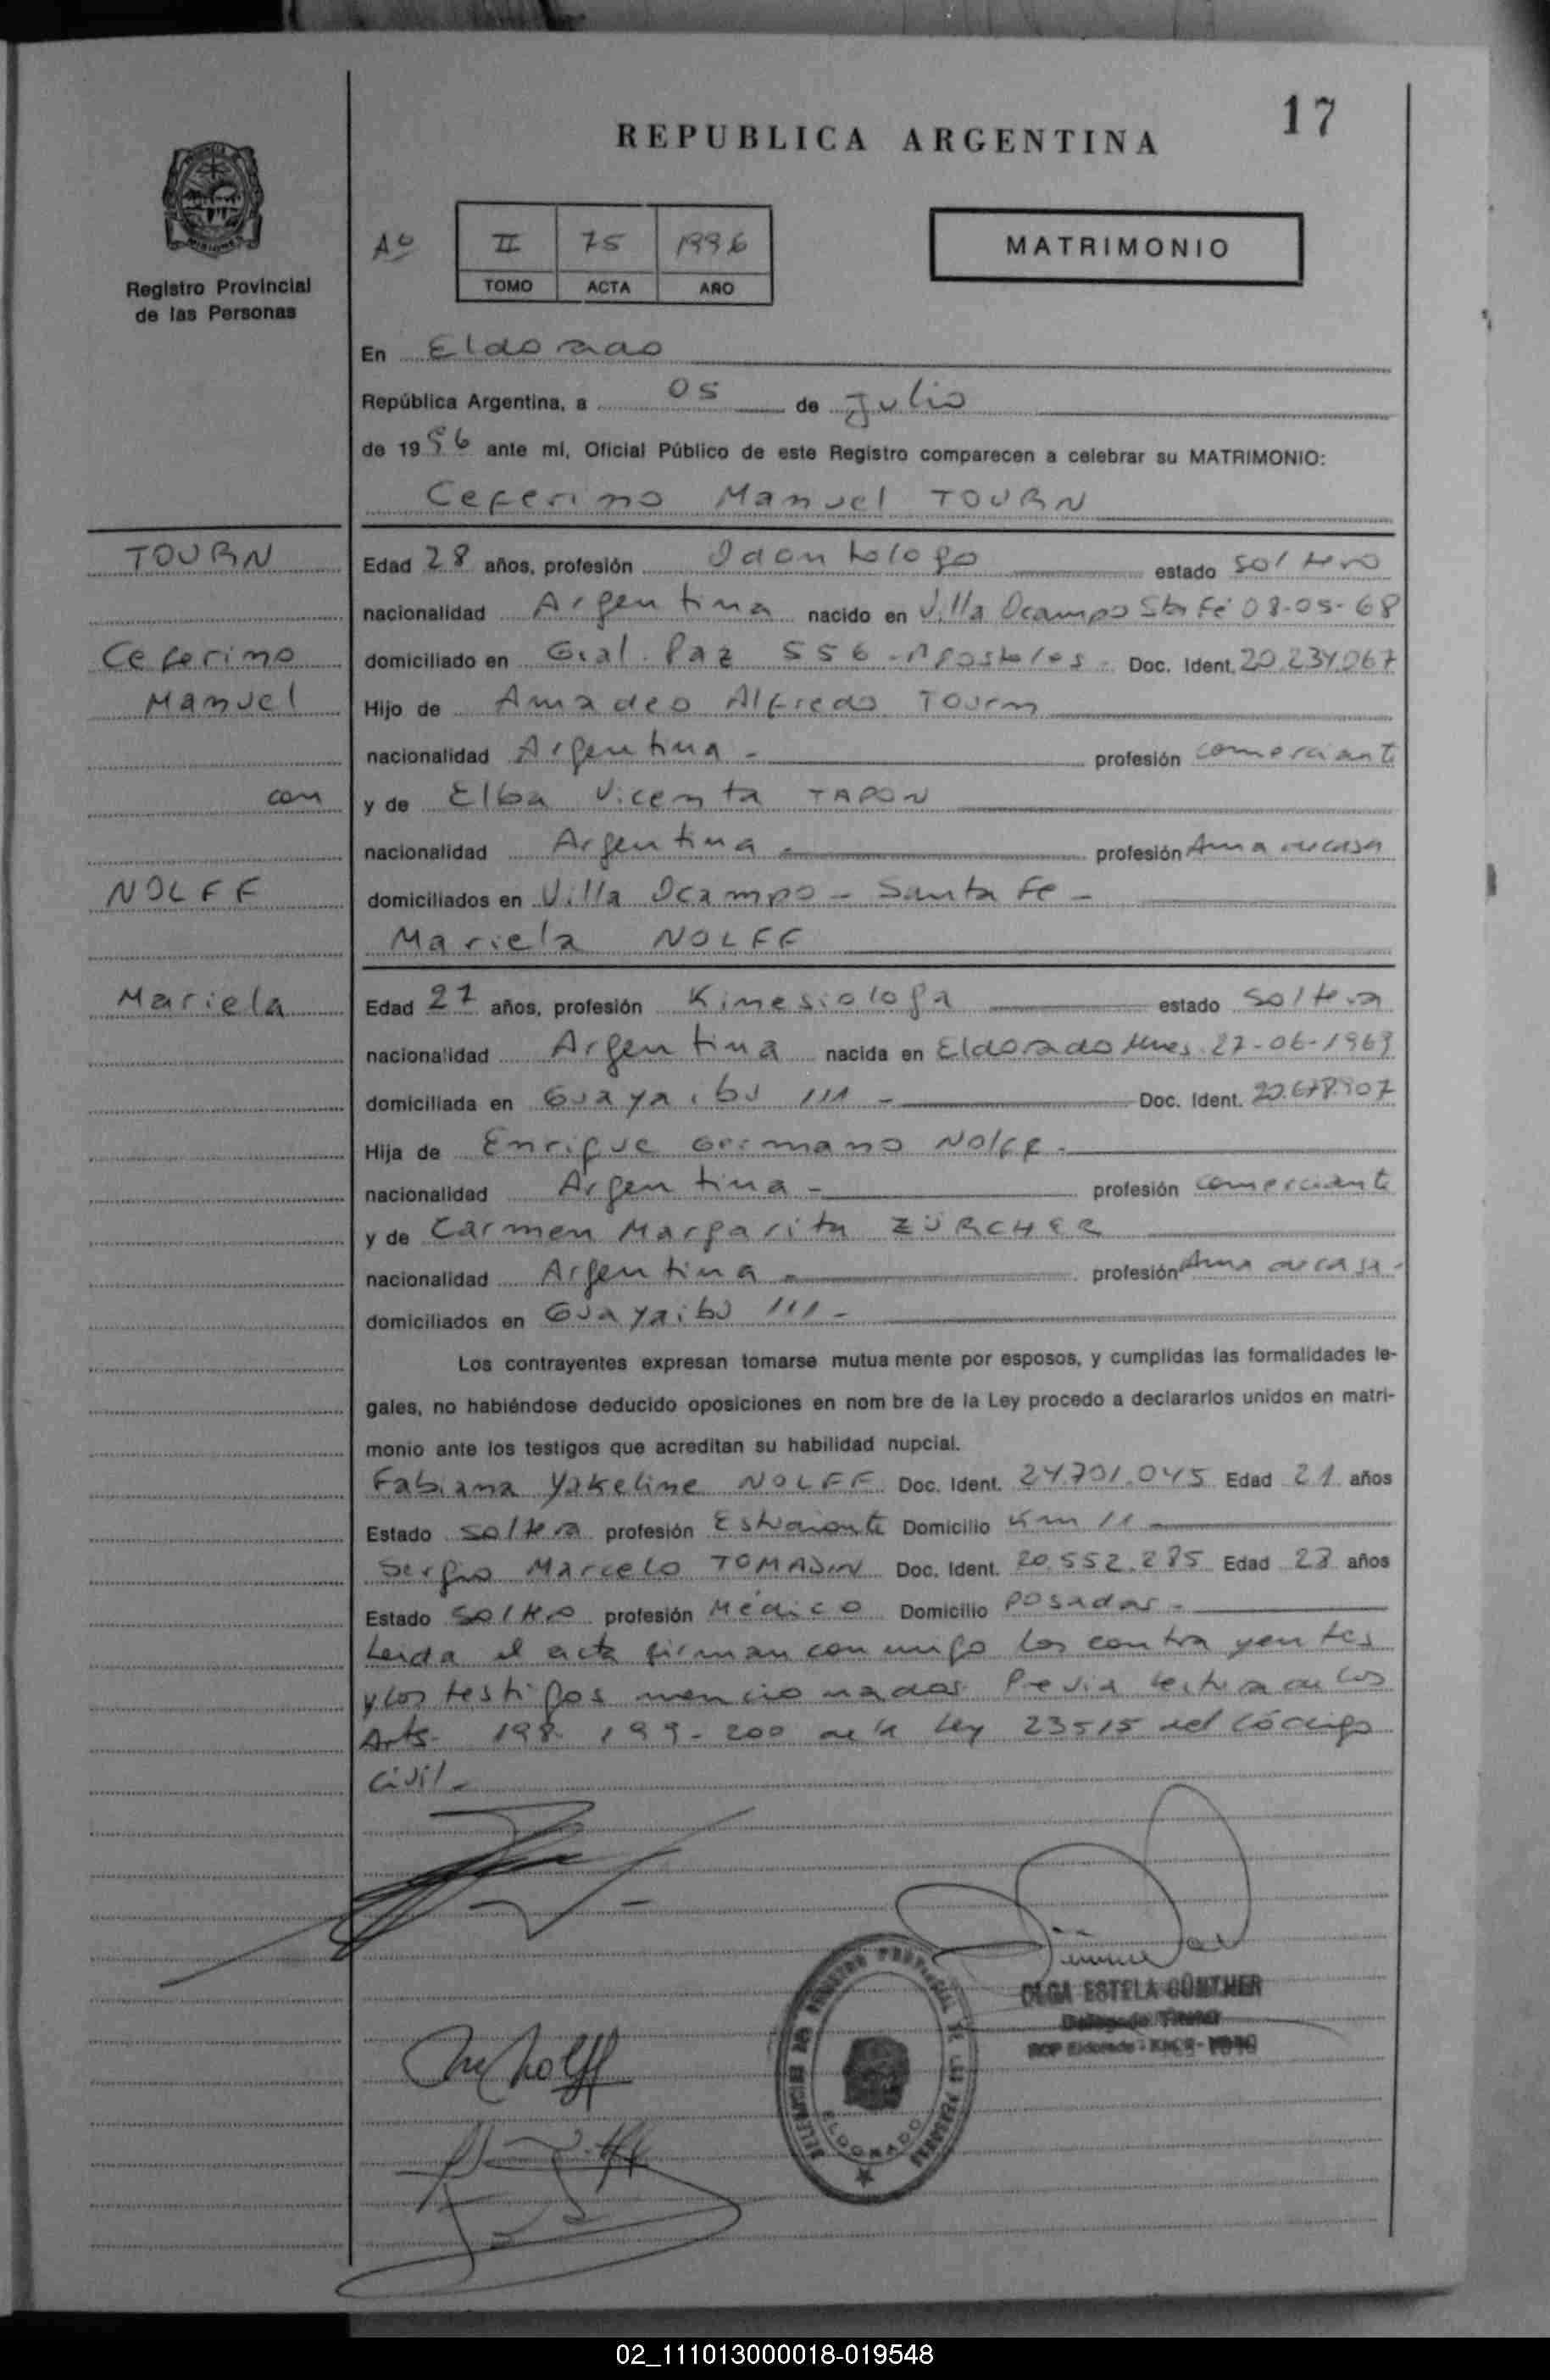 17
REPUBLICA ARGENTINA
MISIONES
Registro Provincial
de las Personas
Aº
II 75 1996
TOMO ACTA AÑO
MATRIMONIO
En Eldorado
República Argentina, a 05 de Julio
de 1996 ante mí, Oficial Público de este Registro comparecen a celebrar su MATRIMONIO:
Ceferino Manuel TOURN
TOURN
Edad 28 años, profesión Odontologo estado soltero
nacionalidad Argentina nacido en Villa Ocampo Sta Fé 08-05-68
Ceferino
domiciliado en Gral. Paz 556 - Apostoles - Doc. Ident. 20.234.067
Manuel
Hijo de Amadeo Alfredo Tourn
nacionalidad Argentina - profesión comerciante
con
y de Elba Vicenta TAPON
nacionalidad Argentina - profesión Ama de casa
NOLFF
domiciliados en Villa Ocampo - Santa Fe -
Mariela NOLFF
Mariela
Edad 27 años, profesión Kinesiologa estado soltera
nacionalidad Argentina nacida en Eldorado Mnes 27-06-1969
domiciliada en Guayaibu 111 - Doc. Ident. 20.678.907
Hija de Enrique Germano Nolff -
nacionalidad Argentina - profesión comerciante
y de Carmen Margarita ZÜRCHER
nacionalidad Argentina - profesión Ama de casa -
domiciliados en Guayaibu 111 -
Los contrayentes expresan tomarse mutua mente por esposos, y cumplidas las formalidades le-
gales, no habiéndose deducido oposiciones en nom bre de la Ley procedo a declararlos unidos en matri-
monio ante los testigos que acreditan su habilidad nupcial.
Fabiana Yakeline NOLFF Doc. Ident. 24.701.045 Edad 21 años
Estado soltera profesión Estudiante Domicilio Km 11
Sergio Marcelo TOMASIN Doc. Ident. 20.552.285 Edad 28 años
Estado soltero profesión Médico Domicilio Posadas -
Leida el acta firman conmigo los contrayentes
y los testigos mencionados Previa lectura de los
Arts. 198 - 199 - 200 de la Ley 23515 del Código
Civil -
OLGA ESTELA GÜNTHER
Delegada Titular
DELEGACION DEL REGISTRO PROVINCIAL DE LAS PERSONAS
ELDORADO
02_111013000018-019548